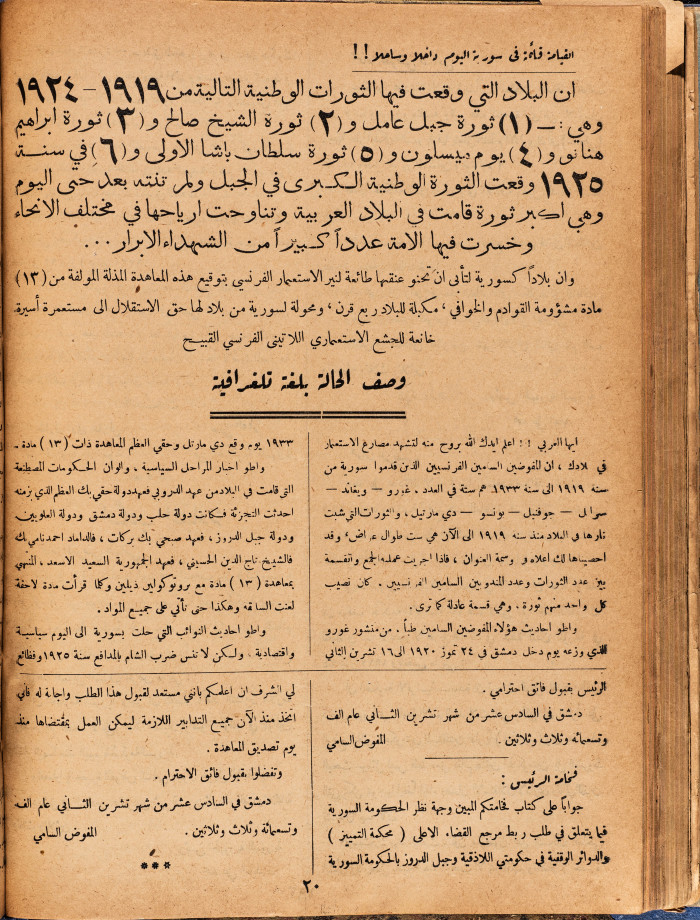 القيامة قائمة في سورية اليوم داخلا وساحلا !!
ان البلاد التي وقعت فيها الثورات الوطنية التالية من ١٩١٩ - ١٩٢٤
وهي : ــ (١) ثورة جبل عامل و (٢) ثورة الشيخ صالح و (٣) ثورة ابراهيم
هنانو و (٤) يوم ميسلون و (٥) ثورة سلطان باشا الاولى و (٦) في سنة
١٩٢٥ وقعت الثورة الوطنية الكبرى في الجبل ولم تنته بعد حتى اليوم
وهي اكبر ثورة قامت في البلاد العربية وتناوحت ارياحها في مختلف الانحاء
وخسرت فيها الامة عدداً كبيراً من الشهداء الابرار ...
وان بلاداً كسورية لتأبى ان تحنو عنقها طائعة لنير الاستعمار الفرنسي بتوقيع هذه المعاهدة المذلة المولفة من (١٣)
مادة مشؤومة القوادم والخوافي ، مكبلة للبلاد ربع قرن ، ومحولة لسورية من بلاد لها حق الاستقلال الى مستعمرة أسيرة
خانعة للجشع الاستعماري اللاتيني الفرنسي القبيح
وصف الحالة بلغة تلغرافية
ايها العربي !! اعلم ايدك الله بروح منه لتشهد مصارع الاستعمار
في بلادك ، ان المفوضين السامين الفرنسيين الذين قدموا سورية من
سنة ١٩١٩ الى سنة ١٩٣٣ هم ستة في العدد . غورو – ويغاند –
سراي – جوفنيل – بونسو – دي مارتيل ، والثورات التي شبت
نارها في البلاد منذ سنة ١٩١٩ الى الآن هي ست طوال عراض ، وقد
احصيناها لك اعلاه و وسمة العنوان ، فاذا اجريت عملية الجمع والقسمة
بين عدد الثورات وعدد المندوبين السامين الفرنسيين . كان نصيب
كل واحد منهم ثورة . وهي قسمة عادلة كما ترى .
واطو احاديث هؤلاء المفوضين السامين طياً . من منشور غورو
الذي وزعه يوم دخل دمشق في ٢٤ تموز ١٩٢٠ الى ١٦ تشرين الثاني
١٩٣٣ يوم وقع دي مارتل وحقي العظم المعاهدة ذات (١٣) مادة ــ
واطو اخبار المراحل السياسية ، والوان الحكومات المصطنعة
التي قامت في البلاد من عهد الدروبي فعهد دولة حقي بك العظم الذي بزمنه
احدثت التجزئة فكانت دولة حلب ودولة دمشق ودولة العلويين
ودولة جبل الدروز ، فعهد صبحي بك بركات ، فالداماد احمد نامي بك
فالشيخ تاج الدين الحسيني ، فعهد الجمهورية السعيد الاسعد ، المنتهي
بمعاهدة (١٣) مادة مع بروتوكولين ذيلين وكلما قرأت مادة لاحقة
لعنت السابقة وهكذا حتى تأتي على جميع المواد .
واطو احاديث النوائب التي حلت بسورية الى اليوم سياسية
واقتصادية . ولكن لا تنس ضرب الشام بالمدافع سنة ١٩٢٥ وفظائع
الرئيس بقبول فائق احترامي .
دمشق في السادس عشر من شهر تشرين الثاني عام الف
وتسعمائة وثلاث وثلاثين . المفوض السامي
فخامة الرئيس :
جواباً على كتاب فخامتكم المبين وجهة نظر الحكومة السورية
فيما يتعلق في طلب ربط مرجع القضاء الاعلى ( محكمة التمييز )
والدوائر الوقفية في حكومتي اللاذقية وجبل الدروز بالحكومة السورية
لي الشرف ان اعلمكم بانني مستعد لقبول هذا الطلب واجابة له فاني
اتخذ منذ الآن جميع التدابير اللازمة ليمكن العمل بمقتضاها منذ
يوم تصديق المعاهدة .
وتفضلوا بقبول فائق الاحترام .
دمشق في السادس عشر من شهر تشرين الثاني عام الف
وتسعمائة وثلاث وثلاثين . المفوض السامي
***
٢٠